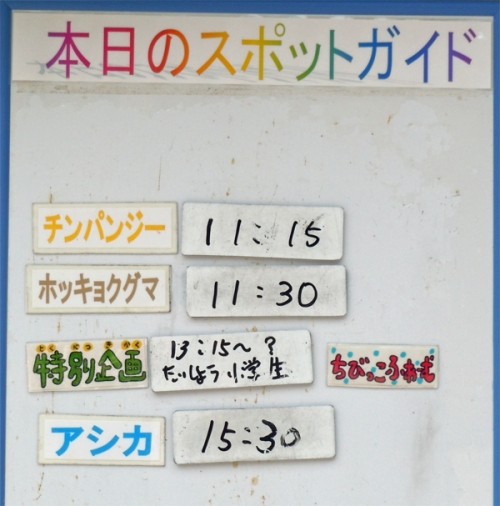 本日のスポットガイド
チンパンジー 11:15
ホッキョクグマ 11:30
とくべつきかく
特別企画 13:15~?
たいしょう小学生
ちびっこふぁむ
アシカ 15:30